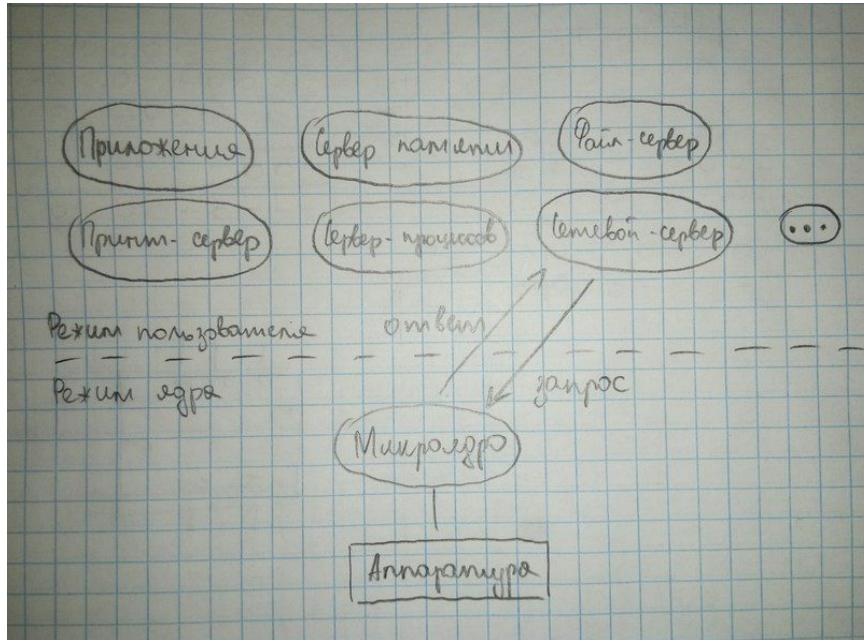 Приложения Сервер памяти Файл-сервер
Принт-сервер Сервер-процессов Сетевой-сервер ...
Режим пользователя ответ
Режим ядра запрос
Микроядро
Аппаратура